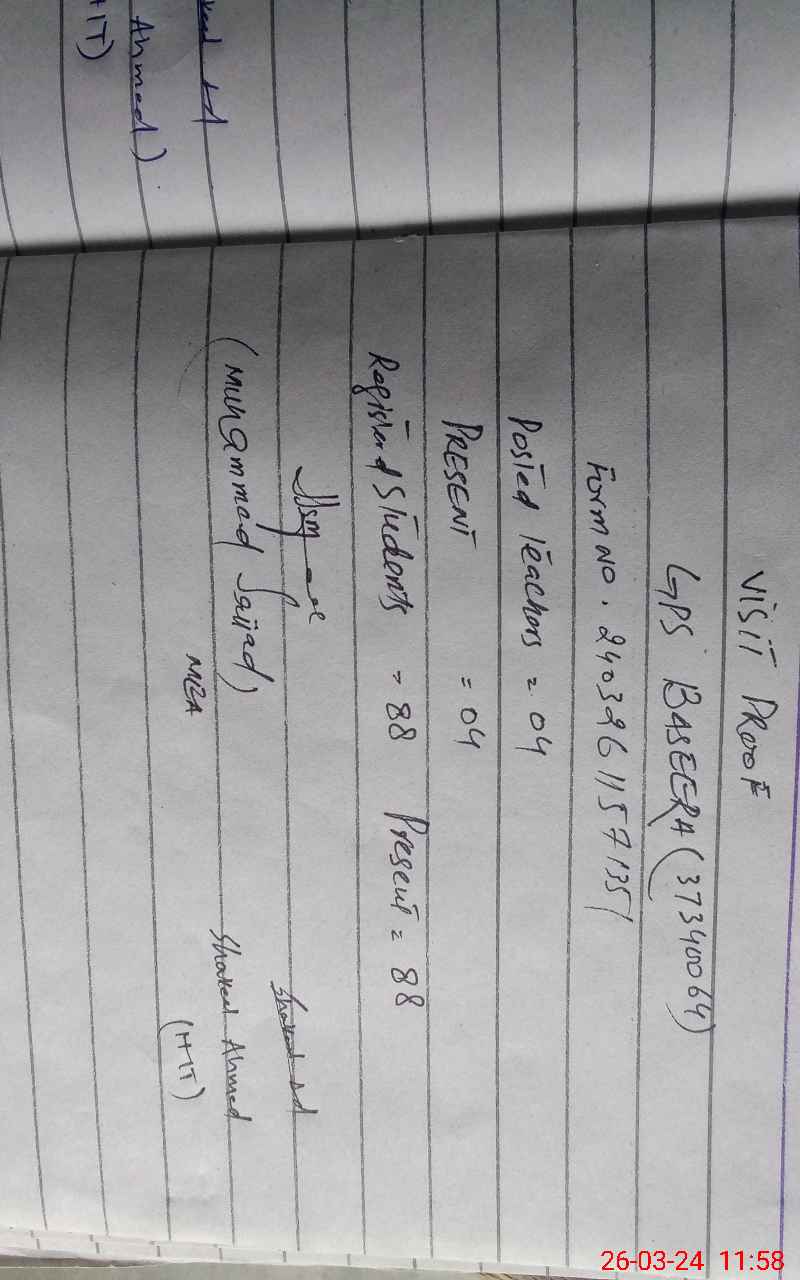 VISIT PROOF
GPS BASEERA (37340064)
Form No. 2403261157135/
Posted Teachers = 04
PRESENT = 04
Registerd Students = 88 Present = 88
(Muhammad Sajjad)
Shakeel Ahmed
(HT)
Ahmed)
HT)
26-03-24 11:58